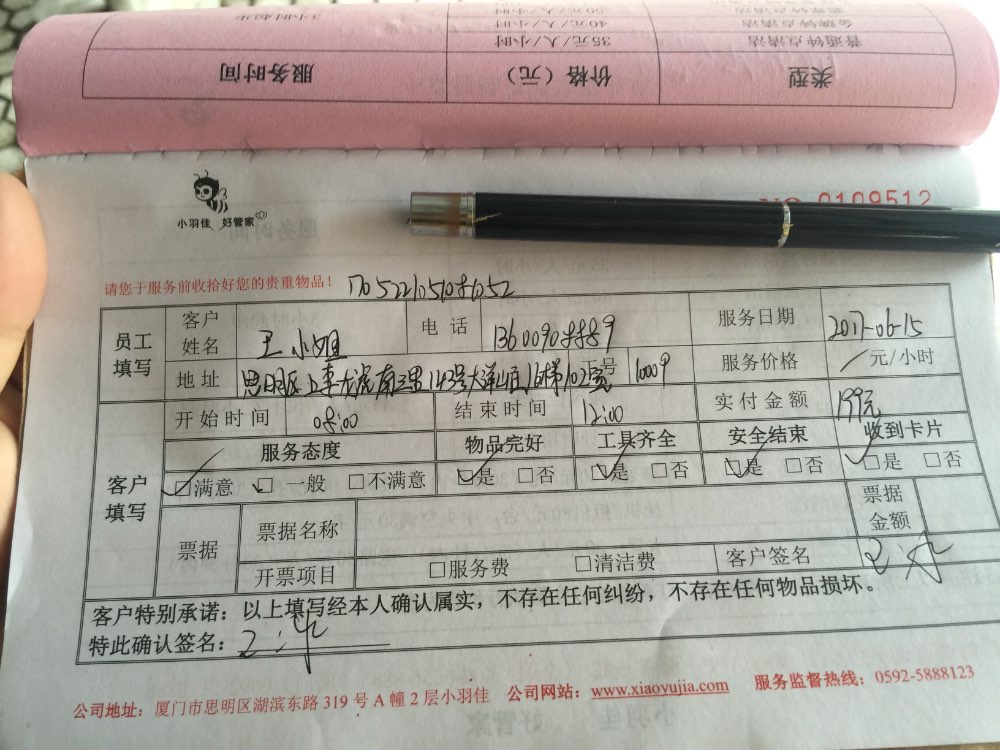 3小时起步
金牌钟点清洁 40元/人/小时
普通钟点清洁 35元/人/小时
类型 价格（元） 服务时间
小羽佳 好管家
NO 0109512
请您于服务前收拾好您的贵重物品！
员工填写 客户姓名 王小姐 电话 13600908889 服务日期 2017-06-15
地址 思明区 南三里143号 16梯102室 工号 10009 服务价格 / 元/小时
开始时间 08:00 结束时间 12:00 实付金额 199元
客户填写 服务态度 物品完好 工具齐全 安全结束 收到卡片
□满意 □一般 □不满意 □是 □否 □是 □否 □是 □否 □是 □否
票据 票据名称 票据金额
开票项目 □服务费 □清洁费 客户签名
客户特别承诺：以上填写经本人确认属实，不存在任何纠纷，不存在任何物品损坏。
特此确认签名：
公司地址：厦门市思明区湖滨东路319号A幢2层小羽佳 公司网站：www.xiaoyujia.com 服务监督热线：0592-5888123